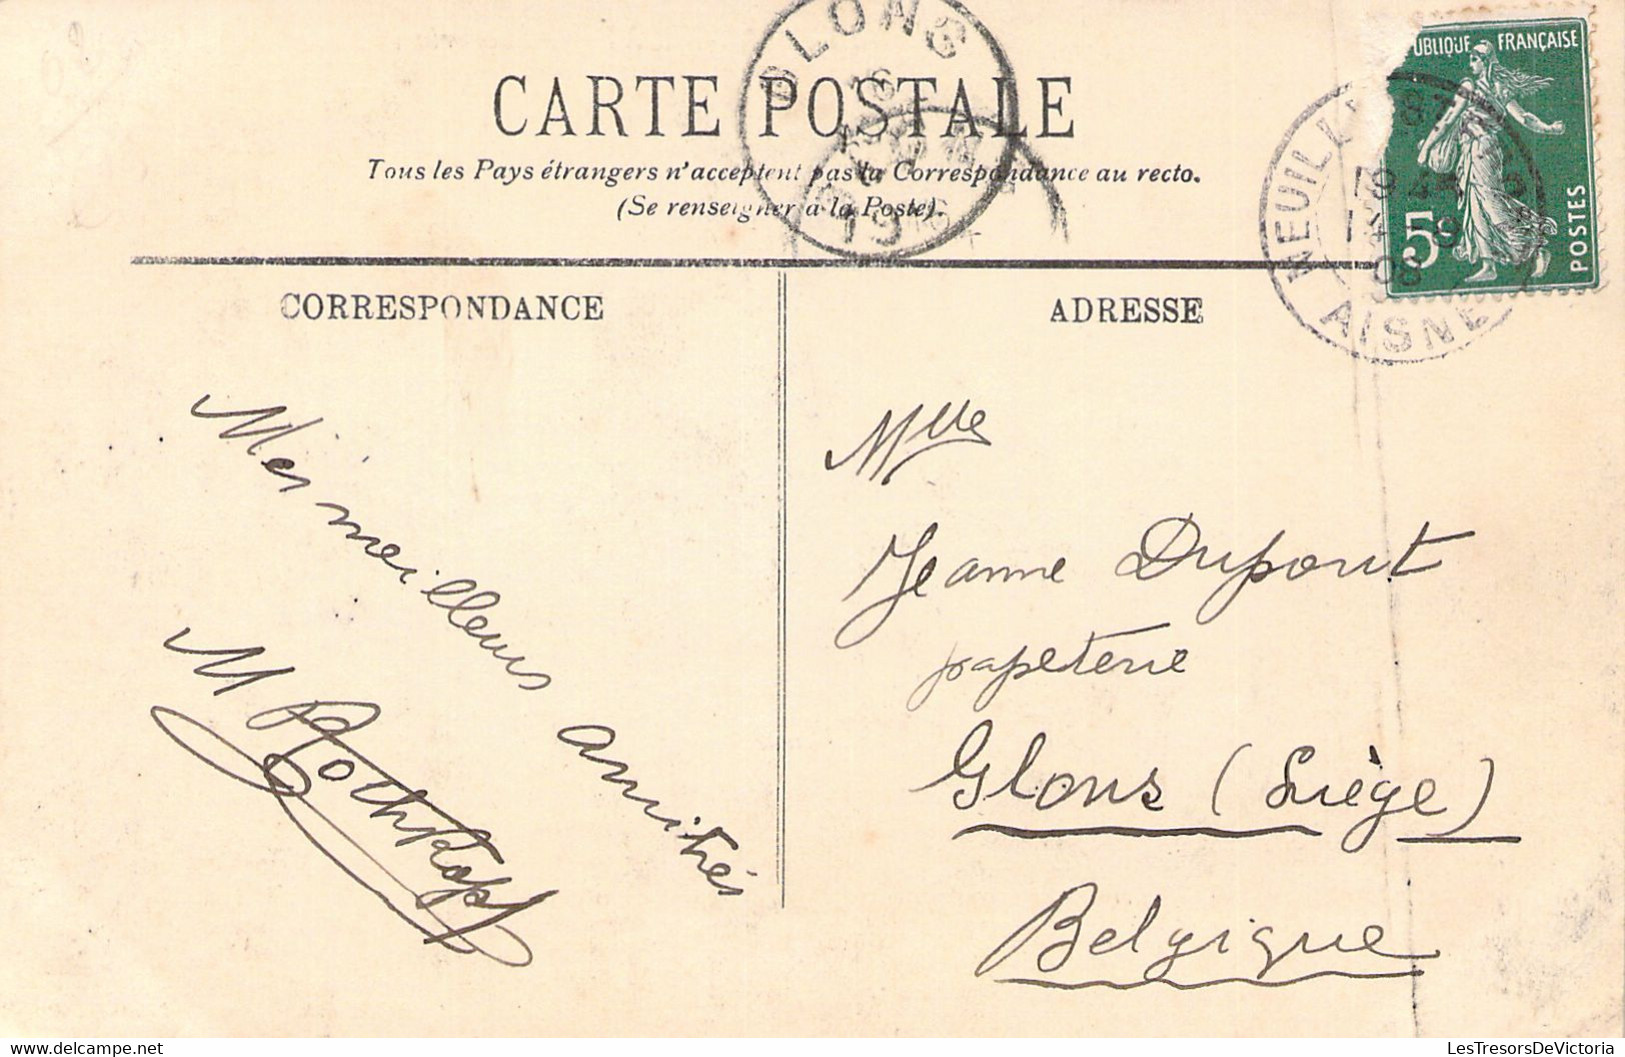 CARTE POSTALE
Tous les Pays étrangers n'acceptent pas la Correspondance au recto.
(Se renseigner à la Poste).
RÉPUBLIQUE FRANÇAISE
5c
POSTES
AISNE
19
CORRESPONDANCE
ADRESSE
Mes meilleurs amitiés
M Rothkopf
Mlle
Jeanne Dupont
papeterie
Glons (Liège)
Belgique
LesTresorsDeVictoria